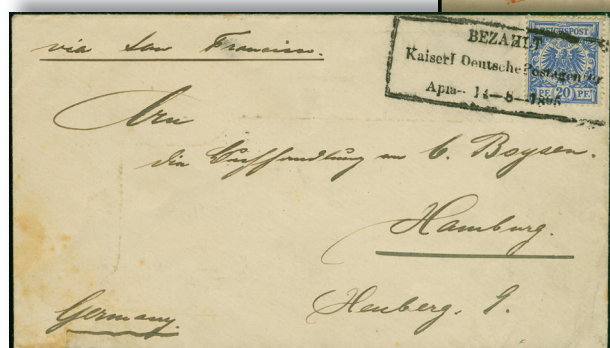 via San Francisco.
BEZAHLT
Kaiserl Deutsche Postagentur
Apia 14-8-1895
REICHSPOST
PF 20 PF
An
die Buchhandlung von C. Boysen.
Hamburg.
Heuberg, 9.
Germany.